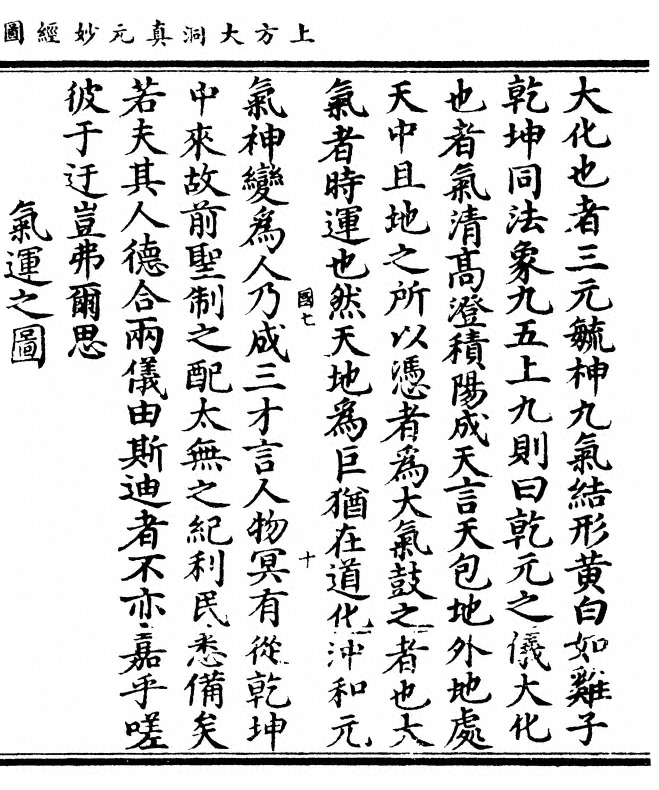 上方大洞真元妙經圖
大化也者三元毓神九氣結形黄白如雞子
乾坤同法象九五上九則曰乾元之儀大化
也者氣清髙澄積陽成天言天包地外地處
天中且地之所以憑者爲大氣鼓之者也大
氣者時運也然天地爲巨猶在道化沖和元
國七
十
氣神變爲人乃成三才言人物冥有從乾坤
中來故前聖制之配太無之紀利民悉備矣
若夫其人德合兩儀由斯迪者不亦嘉乎嗟
彼于迂豈弗爾思
氣運之圖